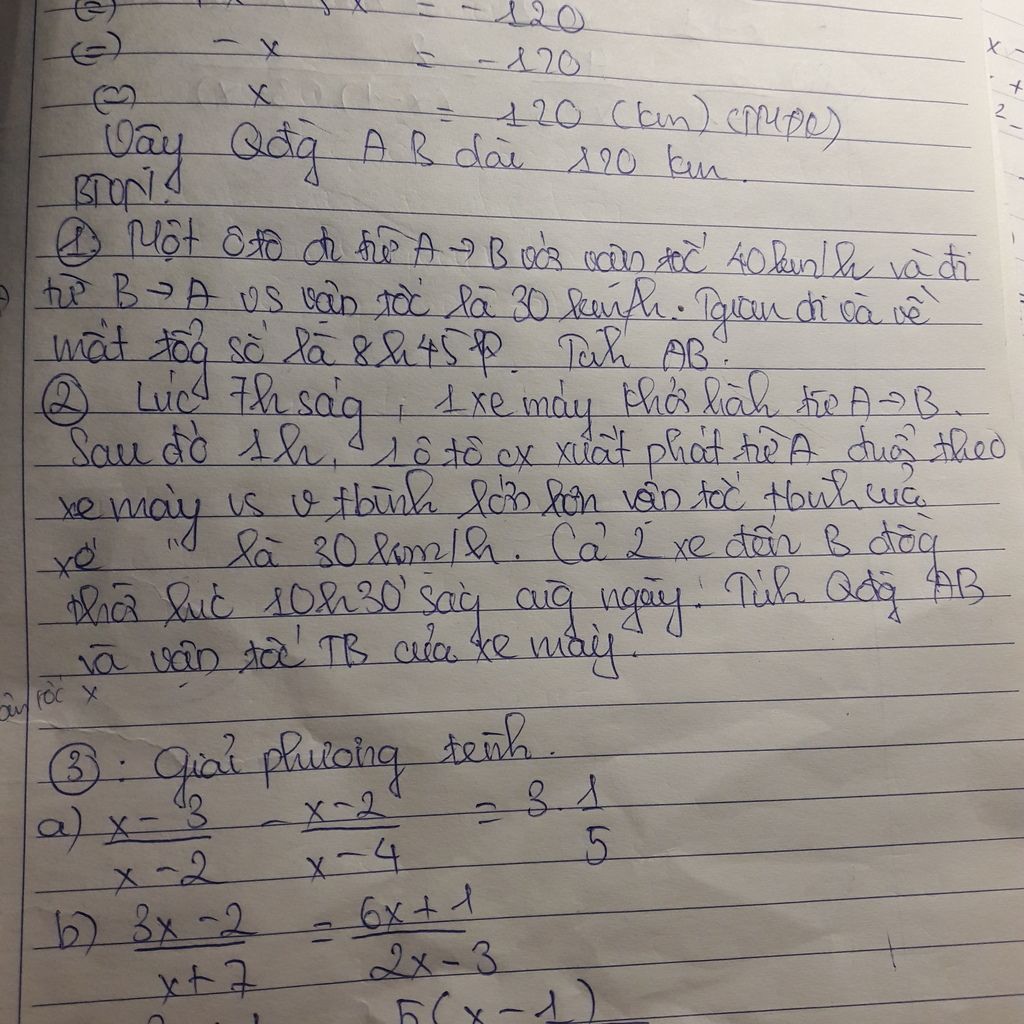 = -120
(=) - x = -120
(=) x = 120 (km) (TMĐK)
Vậy Qđg AB dài 120 km.
BTVN:
① Một ô tô đi từ A → B với vận tốc 40km/h và đi
từ B → A vs vận tốc là 30 km/h. Tgian đi và về
mất tổg số là 8h45p. Tính AB.
② Lúc 7h ság, 1 xe máy khởi hành từ A → B.
Sau đó 1h, 1 ô tô cx xuất phát từ A đuổi theo
xe máy vs v tbình lớn hơn vận tốc tbình của
xe " là 30km/h. Cả 2 xe đến B đồg
thời lúc 10h30' ság cùg ngày. Tính Qđg AB
và vận tốc TB của xe máy.
tốc x
③: Giải phương trình.
a) x - 3 / x - 2 - x - 2 / x - 4 = 3 . 1 / 5
b) 3x - 2 / x + 7 = 6x + 1 / 2x - 3
5(x - 1)